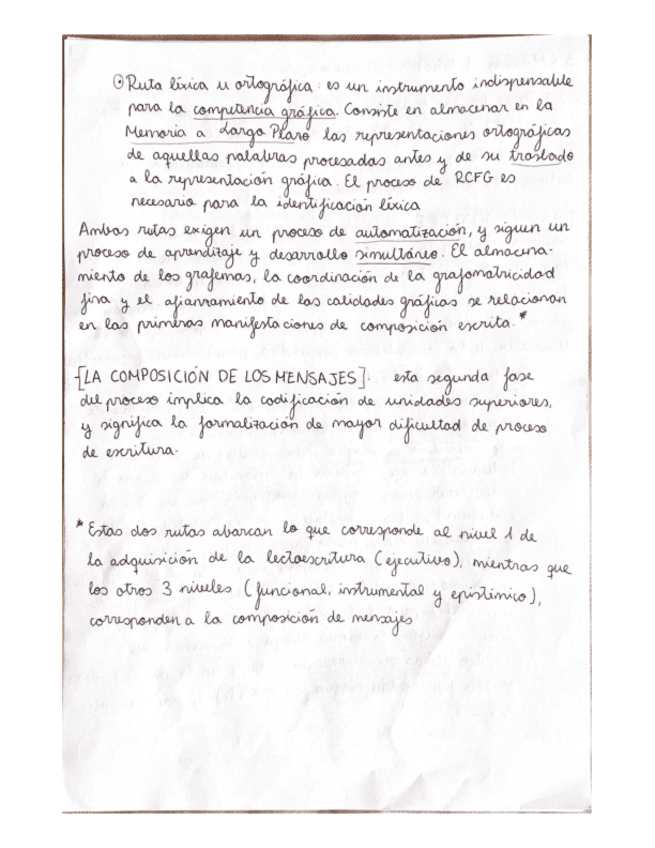 ⊙ Ruta léxica u ortográfica: es un instrumento indispensable
para la competencia gráfica. Consiste en almacenar en la
Memoria a Largo Plazo las representaciones ortográficas
de aquellas palabras procesadas antes y de su traslado
a la representación gráfica. El proceso de RCFG es
necesario para la identificación léxica
Ambas rutas exigen un proceso de automatización, y siguen un
proceso de aprendizaje y desarrollo simultáneo. El almacena-
miento de los grafemas, la coordinación de la grafomatricidad
fina y el afianzamiento de las calidades gráficas se relacionan
en las primeras manifestaciones de composición escrita.*
-[LA COMPOSICIÓN DE LOS MENSAJES]. esta segunda fase
del proceso implica la codificación de unidades superiores,
y significa la formalización de mayor dificultad de proceso
de escritura.
* Estas dos rutas abarcan lo que corresponde al nivel 1 de
la adquisición de la lectoescritura (ejecutivo), mientras que
los otros 3 niveles (funcional, instrumental y epistémico),
corresponden a la composición de mensajes